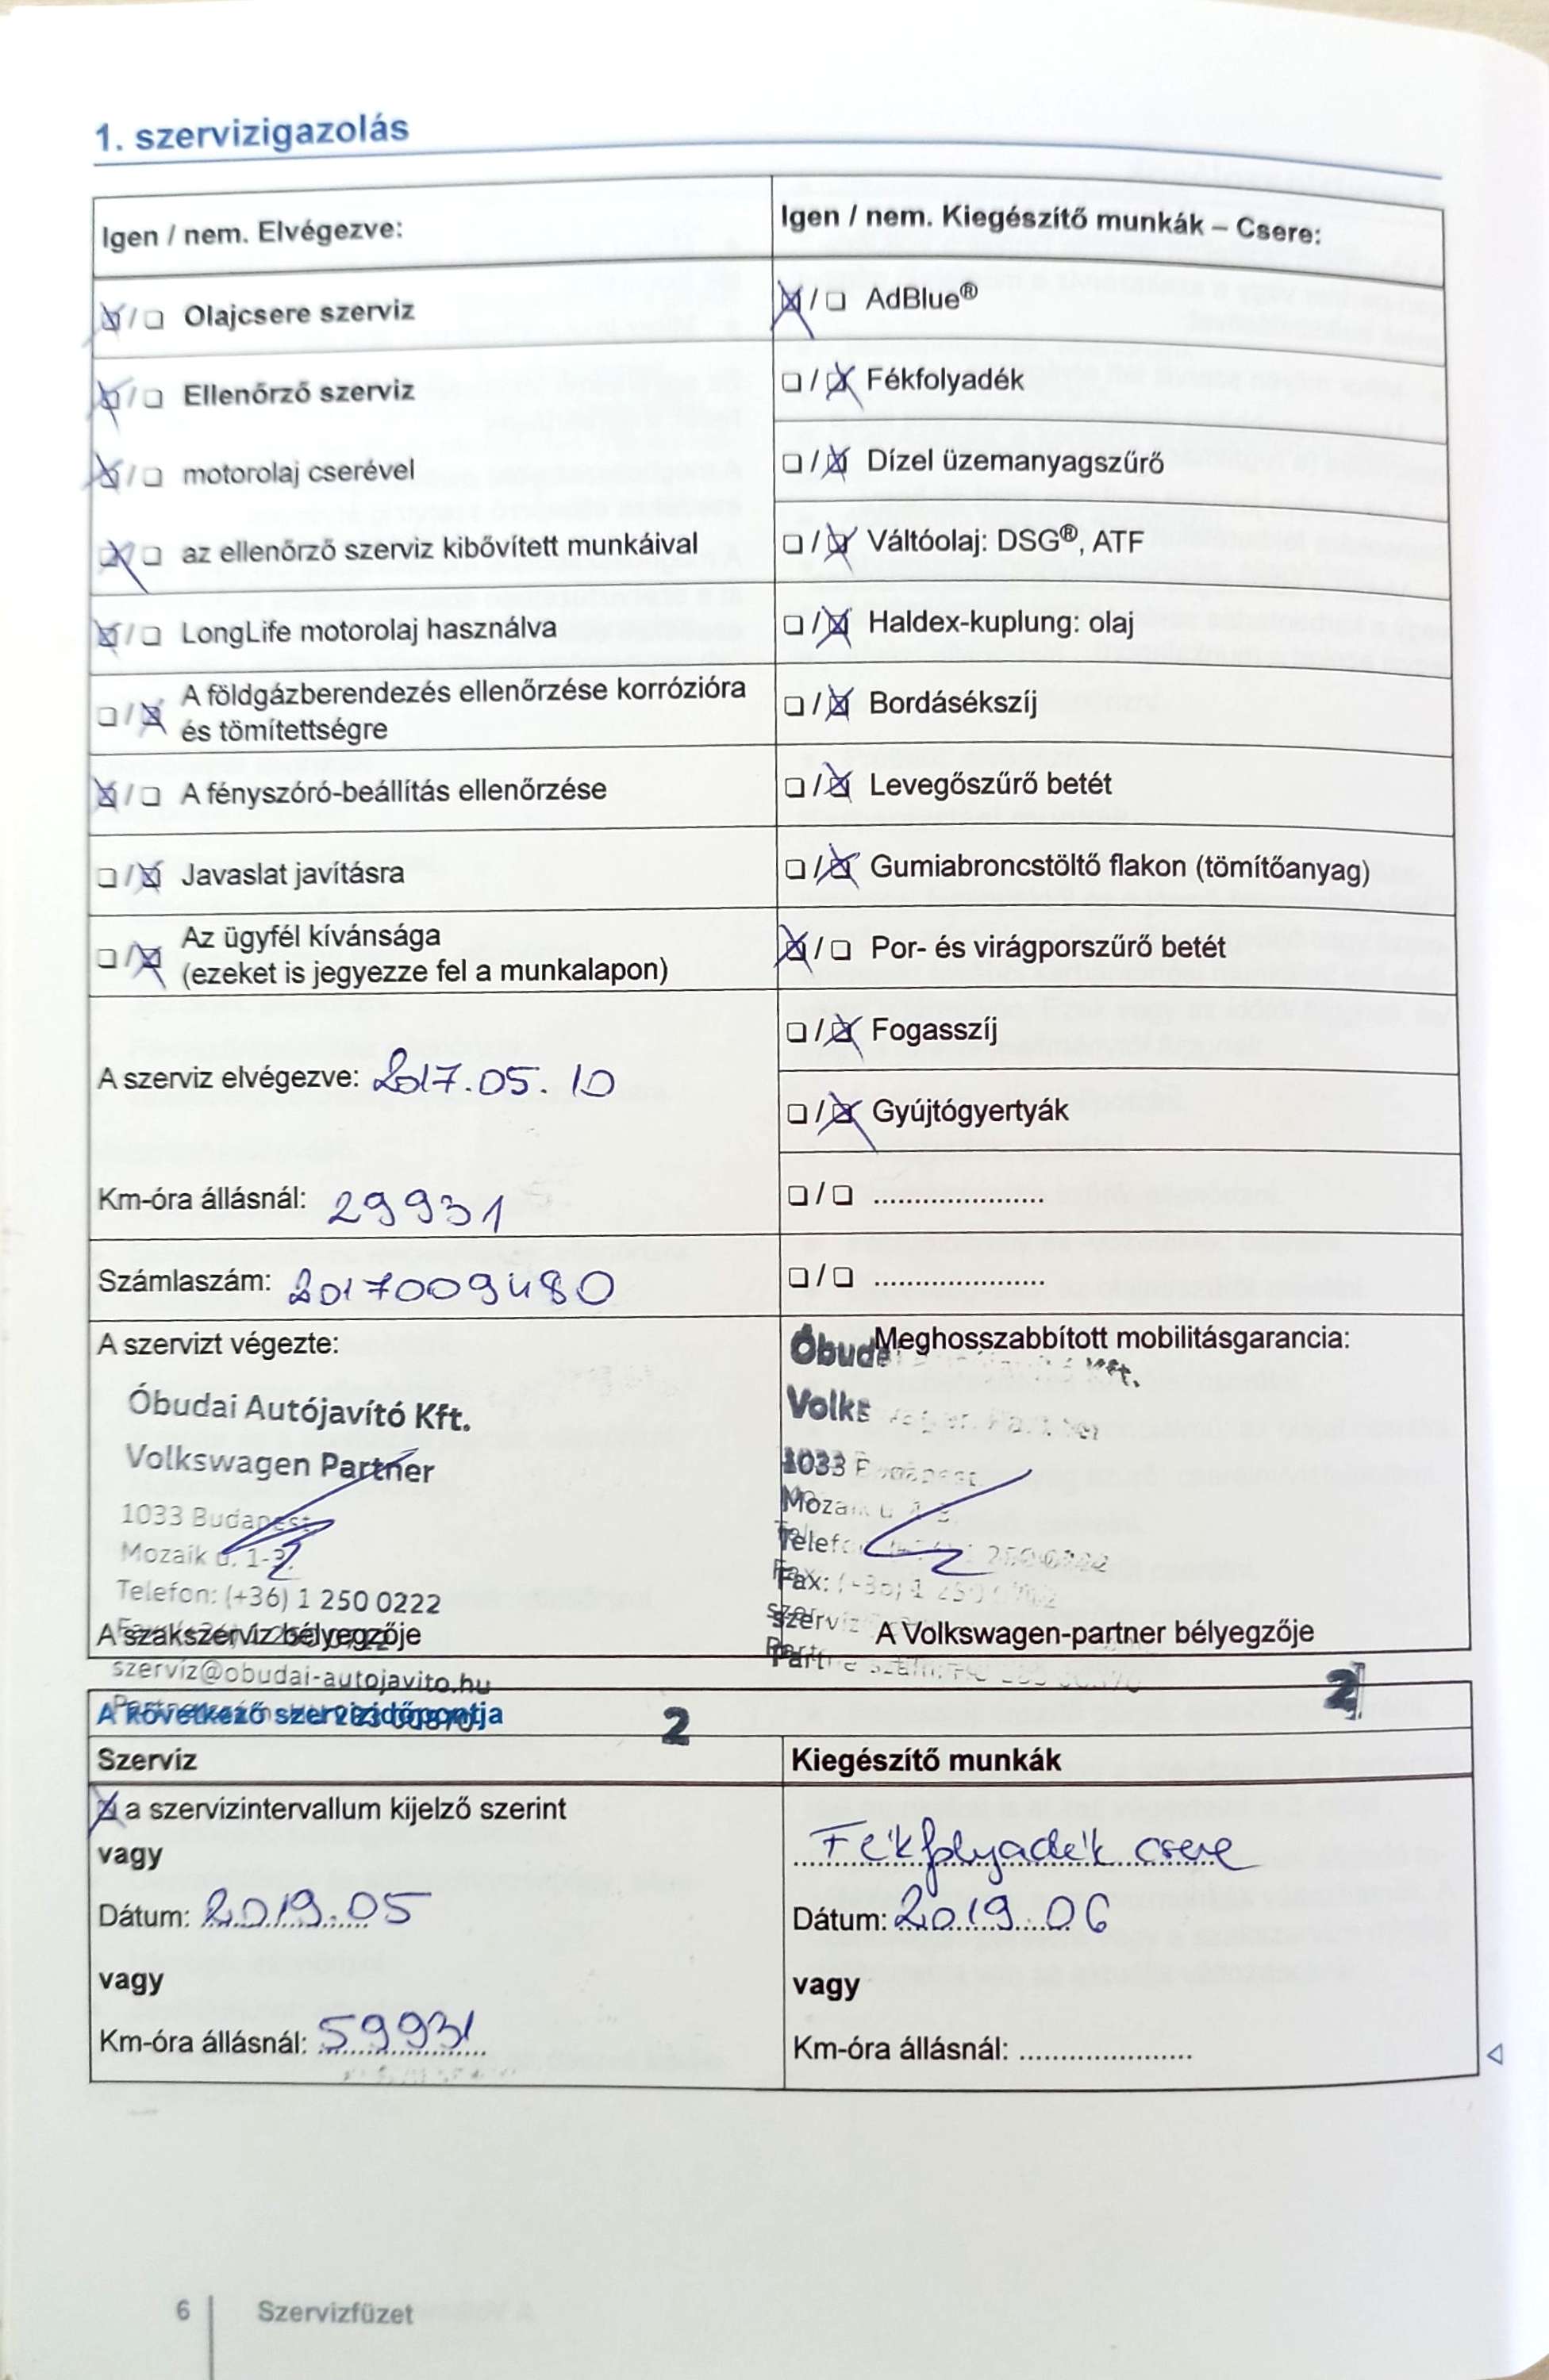 1. szervizigazolás
Igen / nem. Elvégezve:
☒/☐ Olajcsere szerviz
☒/☐ Ellenőrző szerviz
☒/☐ motorolaj cserével
☒/☐ az ellenőrző szerviz kibővített munkáival
☒/☐ LongLife motorolaj használva
☐/☒ A földgázberendezés ellenőrzése korrózióra
és tömítettségre
☒/☐ A fényszóró-beállítás ellenőrzése
☐/☒ Javaslat javításra
☐/☒ Az ügyfél kívánsága
(ezeket is jegyezze fel a munkalapon)
A szerviz elvégezve: 2017.05.10
Km-óra állásnál: 29931
Számlaszám: 2017009480
Igen / nem. Kiegészítő munkák – Csere:
☒/☐ AdBlue®
☐/☒ Fékfolyadék
☐/☒ Dízel üzemanyagszűrő
☐/☒ Váltóolaj: DSG®, ATF
☐/☒ Haldex-kuplung: olaj
☐/☒ Bordásékszíj
☐/☒ Levegőszűrő betét
☐/☒ Gumiabroncstöltő flakon (tömítőanyag)
☒/☐ Por- és virágporszűrő betét
☐/☒ Fogasszíj
☐/☒ Gyújtógyertyák
☐/☐ .....................
☐/☐ .....................
A szervizt végezte:
Óbudai Autójavító Kft.
Volkswagen Partner
1033 Budapest
Mozaik u. 1-3.
Telefon: (+36) 1 250 0222
A szakszerviz bélyegzője
szerviz@obudai-autojavito.hu
2
Meghosszabbított mobilitásgarancia:
Óbudai Kft.
Volkswagen
1033 Budapest
Mozaik u. 1-3.
Telefon: (+36) 1 250 0222
Fax:
A Volkswagen-partner bélyegzője
2
A következő szerviz időpontja
Szerviz
☒ a szervizintervallum kijelző szerint
vagy
Dátum: 2019.05
vagy
Km-óra állásnál: 59931
Kiegészítő munkák
Fékfolyadék csere
Dátum: 2019.06
vagy
Km-óra állásnál: .....................
6 Szervizfüzet